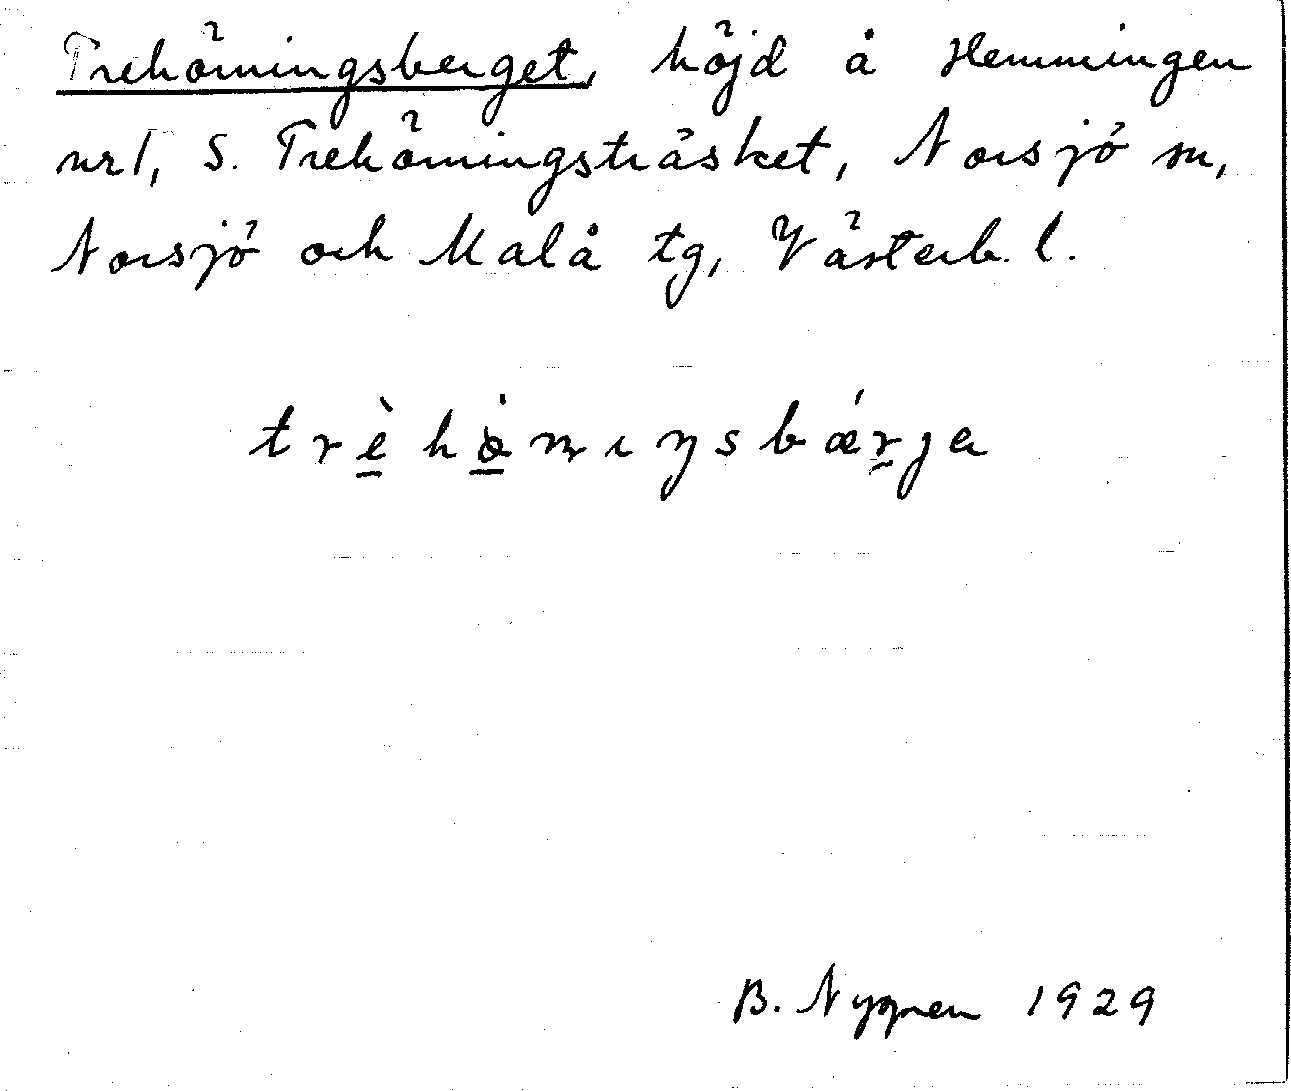 Trehörningsberget, höjd å Hemmingen
nr 1, S. Trehörningsträsket, Norsjö sn,
Norsjö och Malå tg, Västerb. l.
B. Nygren 1929